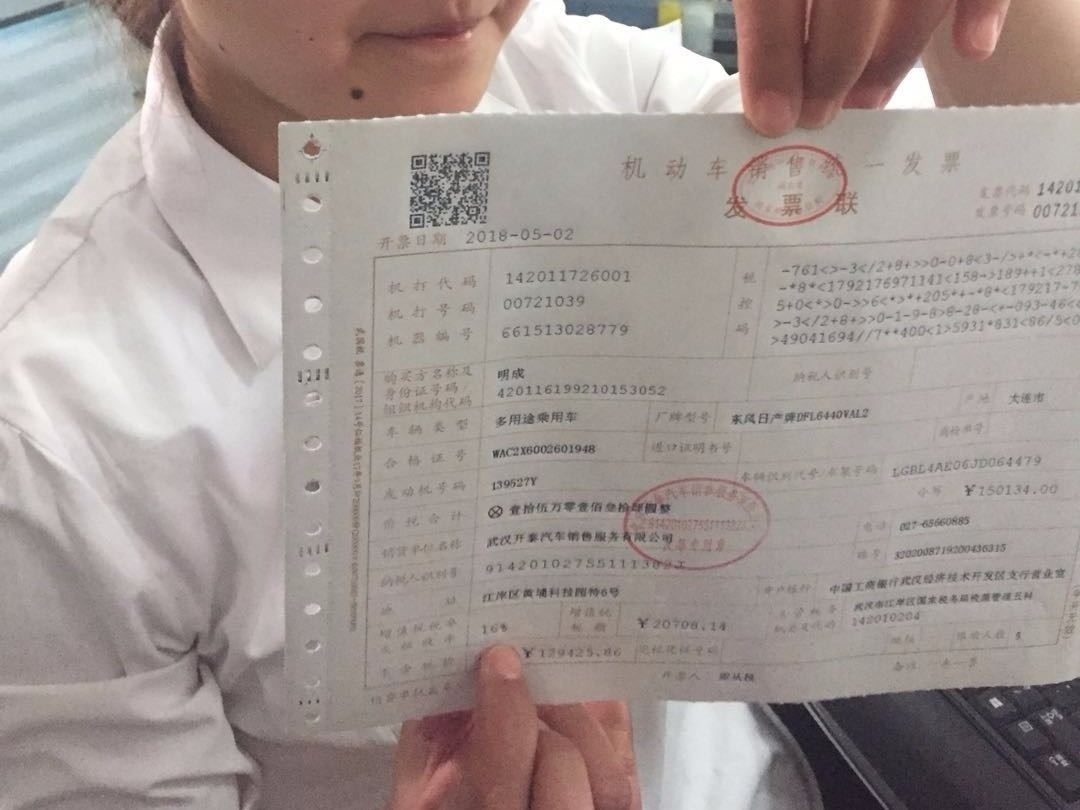 机动车销售统一发票
发票联
发票代码 14201
发票号码 00721
开票日期 2018-05-02
机打代码 142011726001
机打号码 00721039
机器编号 661513028779
税控码
购买方名称及身份证号码/组织机构代码
明成
420116199210153052
纳税人识别号
车辆类型 多用途乘用车 厂牌型号 东风日产牌DFL6440VAL2 产地 大连市
合格证号 WAC2X6002601948 进口证明书号 商检单号
发动机号码 139527Y 车辆识别代号/车架号码 LGBL4AE06JD064479
价税合计 ⊗壹拾伍万零壹佰叁拾肆圆整 小写 ¥150134.00
销货单位名称 武汉开泰汽车销售服务有限公司 电话 027-65660885
纳税人识别号 账号 3202008719200436315
地址 江岸区黄埔科技园特6号 开户银行 中国工商银行武汉经济技术开发区支行营业室
增值税税率或征收率 16% 增值税税额 ¥20708.14 主管税务机关及代码 武汉市江岸区国家税务局税源管理五科
142010204
不含税价 ¥129425.86 完税凭证号码 吨位 限乘人数 5
销货单位盖章 开票人 备注：一车一票